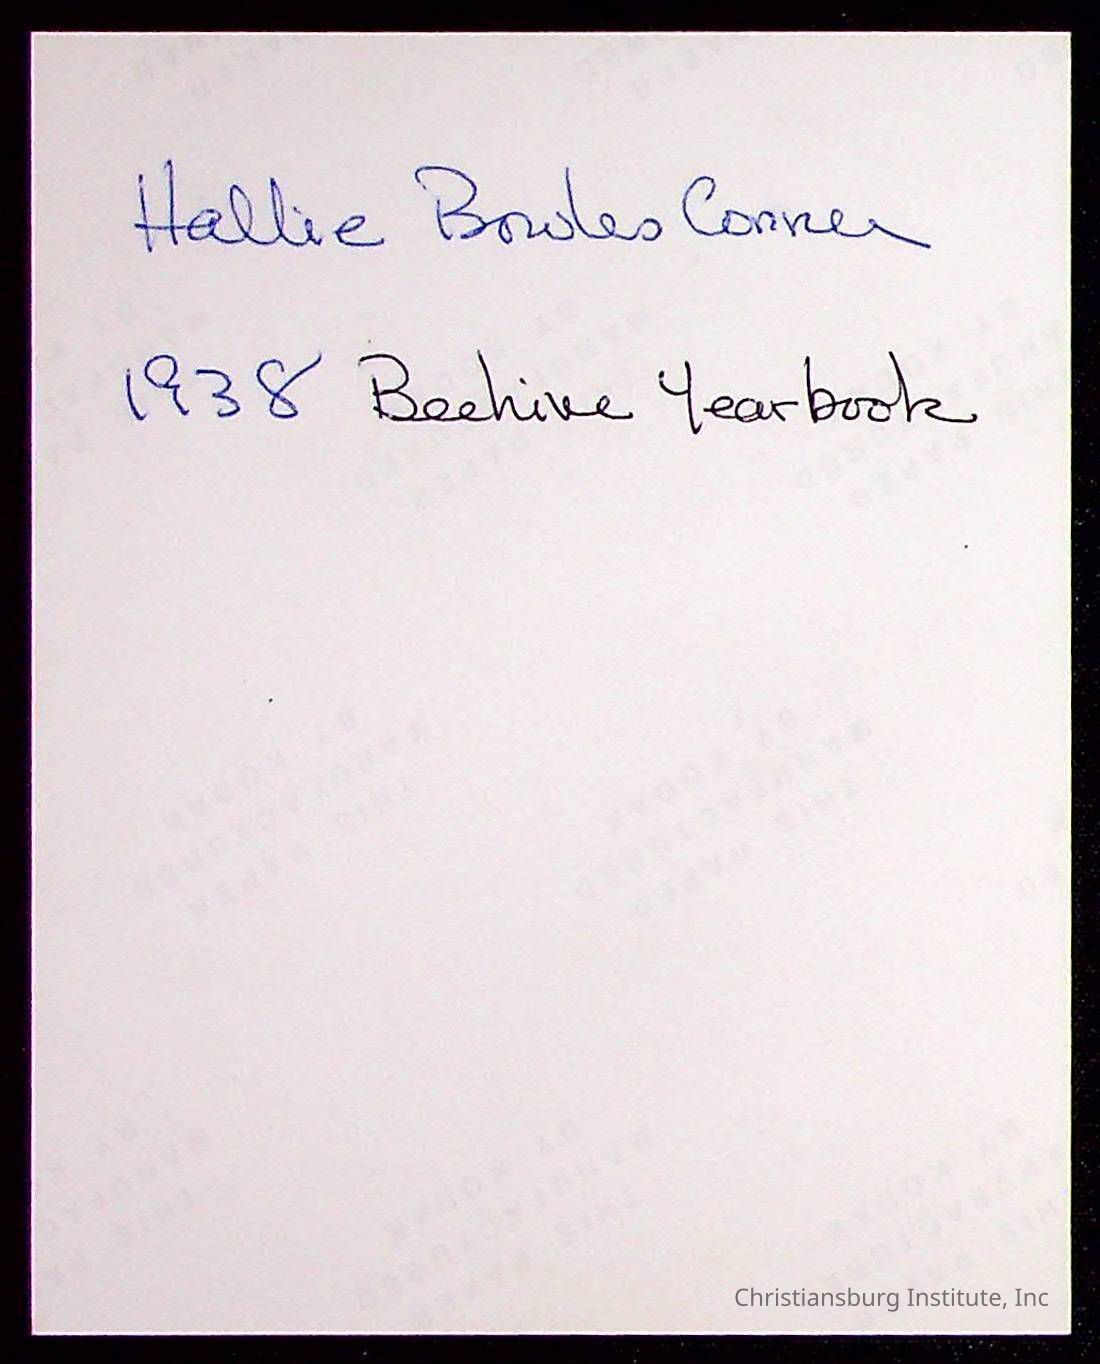 Hallie Bowles Conner
1938 Beehive Yearbook
Christiansburg Institute, Inc